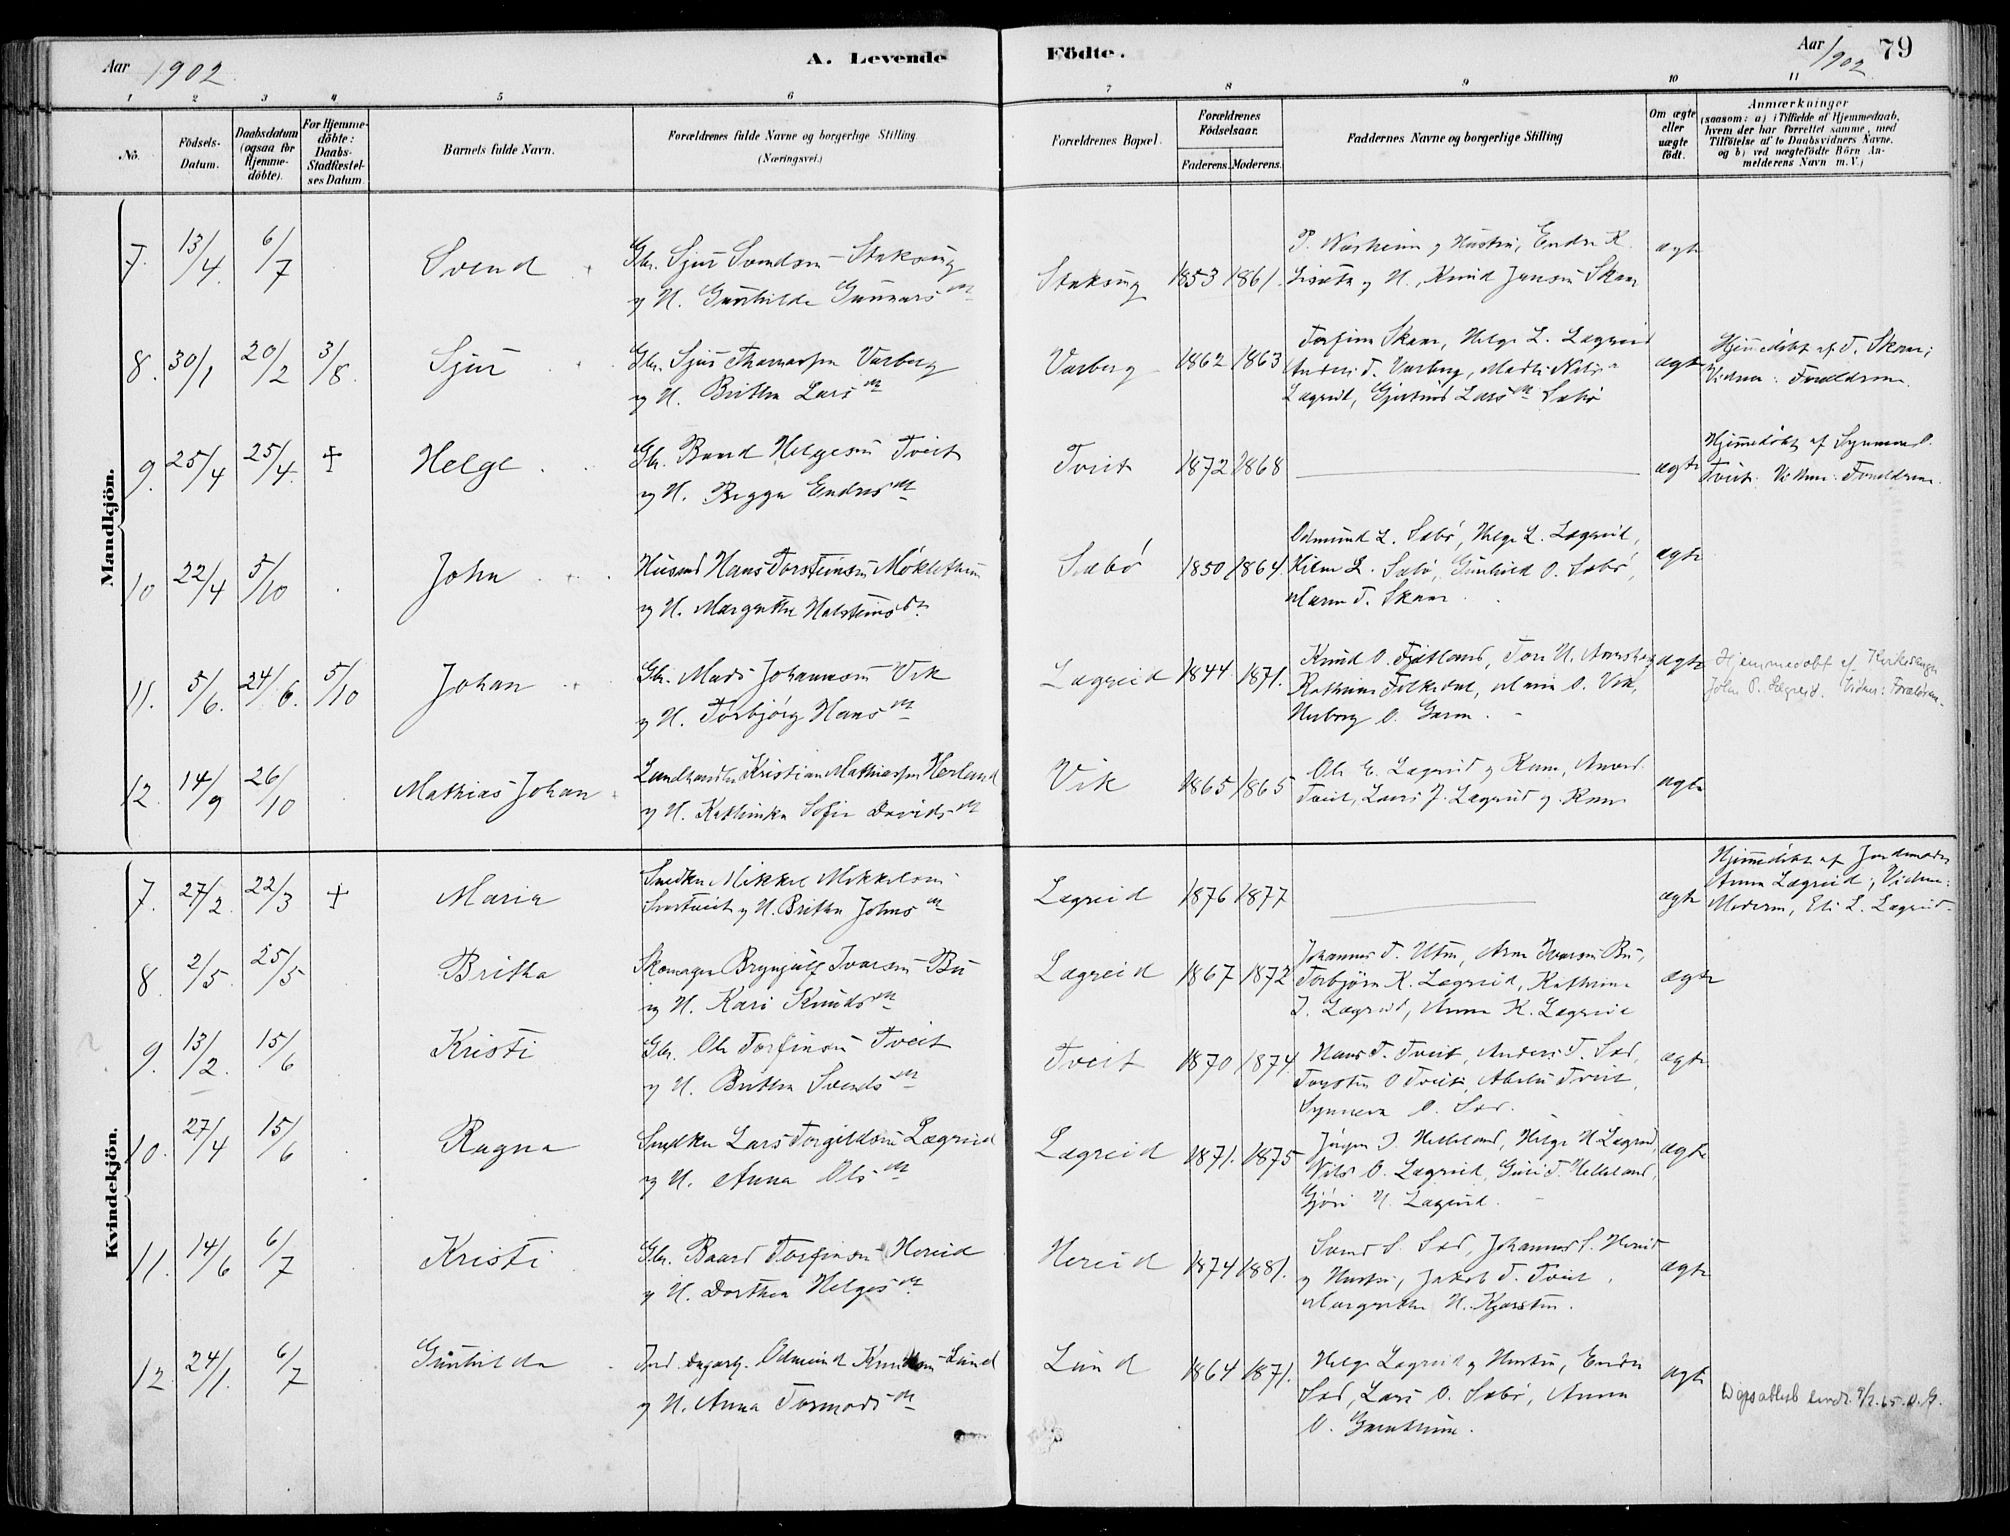 Aar 1902.
A. Levende
Födte.
Aar 1902.
79
1 2 3 4 5 6 7 8 9 10 11
No.
Födsels-Datum.
Daabsdatum (ogsaa for Hjemme-döbte).
For Hjemme-döbte: Daabs-Stadfæstel-ses Datum
Barnets fulde Navn.
Forældrenes fulde Navne og borgerlige Stilling.
(Næringsvei.)
Forældrenes Bopæl.
Forældrenes Födselsaar.
Faderens. Moderens.
Faddernes Navne og borgerlige Stilling
Om ægte eller uægte födt.
Anmærkninger
(saasom: a) i Tilfælde af Hjemmedaab, hvem der har forrettet samme, med Tilföielse af to Daabsvidners Navne, og b) ved uægtefödte Börn An-melderens Navn m. V.)
Mandkjön.
7. 13/4. 6/7 Svend
Gbr. Sjur Svendsen Staksong
og H. Gunhilde Gunnarsdtr
Staksong 1853 1861.
og Hustru, Endre K.
og H., Knud Jansen Skaar
ægte
8. 30/1 20/2 3/8. Sjur
Gbr. Sjur Thomassen Varberg
og H. Britha Larsdtr
Varberg 1862 1863
Torfinn Skaar, Helge L. Lægreid
Anders T. Varberg, Marthe Nilsdtr
Lægreid, Gjertrud Larsdtr Sæbø
ægte
Hjemmedøbt af T. Skaar;
Vidner: Forældrene.
9. 25/4 25/4. + Helge
Gbr. Baard Helgesen Tveit
og H. Brygga Endresdtr
Tveit 1872 1868
ægte
Hjemmedøbt af Synneva O.
Tveit. Vidner: Forældrene.
10 22/4 5/10 John
Husmd Hans Torsteinsen Møkletun
og H. Margretha Halsteinsdr.
Sæbø 1850 1864.
Odmund L. Sæbø, Helge L. Lægreid,
L. Sæbø, Gunhild O. Sæbø,
Maren T. Skaar
ægte
11. 5/6. 24/6. 5/10 Johan
Gbr. Mads Johannesen Vik
og H. Torbjørg Hansdtr
Lægreid 1844 1871.
Knud O. Fjætland, Tore H.
Kathrine Folkedal, Maria O. Vik,
Herborg O. Garen.
ægte
Hjemmedøbt af Kirkesanger
John O. Lægreid. Vidner: Forældrene.
12. 14/9 26/10 Mathias Johan
Landhandler Kristian Mathiassen Herland
og H. Kathinka Sofie Davidsdtr
Vik 1865 1865
Ole E. Lægreid og Kone,
Tveit, Lars J. Lægreid og Kone
ægte
Kvindekjön.
7. 27/2. 22/3 + Maria
Snedker Mikkel Mikkelsen
Svartveit og H. Britha Johnsdtr
Lægreid 1876 1877
ægte
Hjemmedøbt af Jordemoder
Anna Lægreid; Vidner:
Moderen, Eli L. Lægreid.
8. 2/5. 25/5 Britha
Skomager Brynjulf Ivarsen Bu
og H. Kari Knudsdtr
Lægreid 1867 1872
Johannes T. Utne, Arne Ivarsen Bu,
Torbjørn K. Lægreid, Kathrine
J. Lægreid, Anna K. Lægreid
ægte
9. 13/2. 15/6 Kristi
Gbr. Ole Torfinsen Tveit
og H. Britha Svendsdtr
Tveit 1870 1874.
Hans T. Tveit, Anders T. Sæd,
Torstein O Tveit, Tveit,
Synneva O. Sæd.
ægte
10. 27/4 15/6 Ragna
Snedker Lars Torgildsen Lægreid
og H. Anna Olsdtr
Lægreid 1871. 1875
Jørgen T. Helleland, Helge H Lægreid,
Nils O. Lægreid, Guri T. Helleland,
Gjøri H. Lægreid.
ægte
11. 14/6 6/7 Kristi
Gbr. Baard Torfinsen Hereid
og H. Dorthea Helgesdtr
Hereid 1874 1881.
Svend S. Sæd, Johannes S. Hereid
og Hustru, Jakob T. Tveit,
Margretha H. Kjærstein.
ægte
12. 24/1. 6/7 Gunhilda
Ind. Dagarb. Odmund Knudsen Lund
og H. Anna Tormodsdtr
Lund 1864 1871.
Helge Lægreid og Hustru, Endre
Sæd, Lars O. Sæbø, Anna
O. Garatun.
ægte
Dåpsattest sendt 9/2.65.